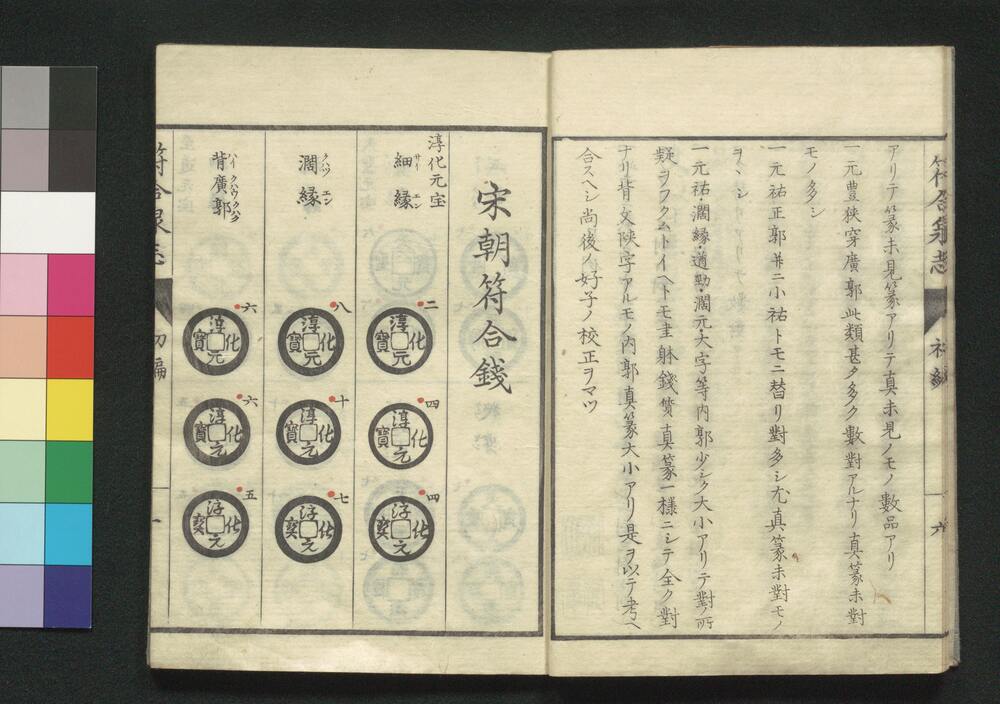 符合泉志
六
アリテ篆未見篆アリテ真未見ノモノ數品アリ
一元豊狭穿廣郭此類甚タ多ク數對アルナリ真篆未對
モノ多シ
一元祐正郭並ニ小祐トモニ替リ對多シ尤真篆未對モノ
ヲヽシ
一元祐濶縁遒勁濶元大字等内郭少シク大小アリテ對ノ所
疑ヲフクムトイヘトモ躰錢質真篆一様ニシテ全ク對
ナリ背文陝字アルモノ内郭真篆大小アリ是ヲ以テ考ヘ
合スヘシ尚後ノ好子ノ校正ヲマツ
宋朝符合錢
淳化元宝
細縁
サイ エン
二
淳化元寶
四
淳化元寶
四
淳化元寶
濶縁
クハツ エン
八
淳化元寶
十
淳化元寶
七
淳化元寶
背廣郭
ハイ クハウ クハク
六
淳化元寶
六
淳化元寶
五
淳化元寶
符合泉志
初編
一